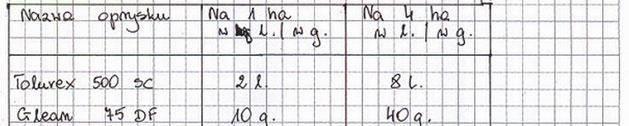 Nazwa oprysku Na 1 ha Na 4 ha
w l. / w g. w l. / w g.
Tolurex 500 SC 2 l. 8 l.
Glean 75 DF 10 g. 40 g.